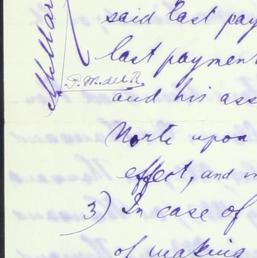 said last pay
last payment
and his ass
North upon
effect, and in
3) In case of
of making